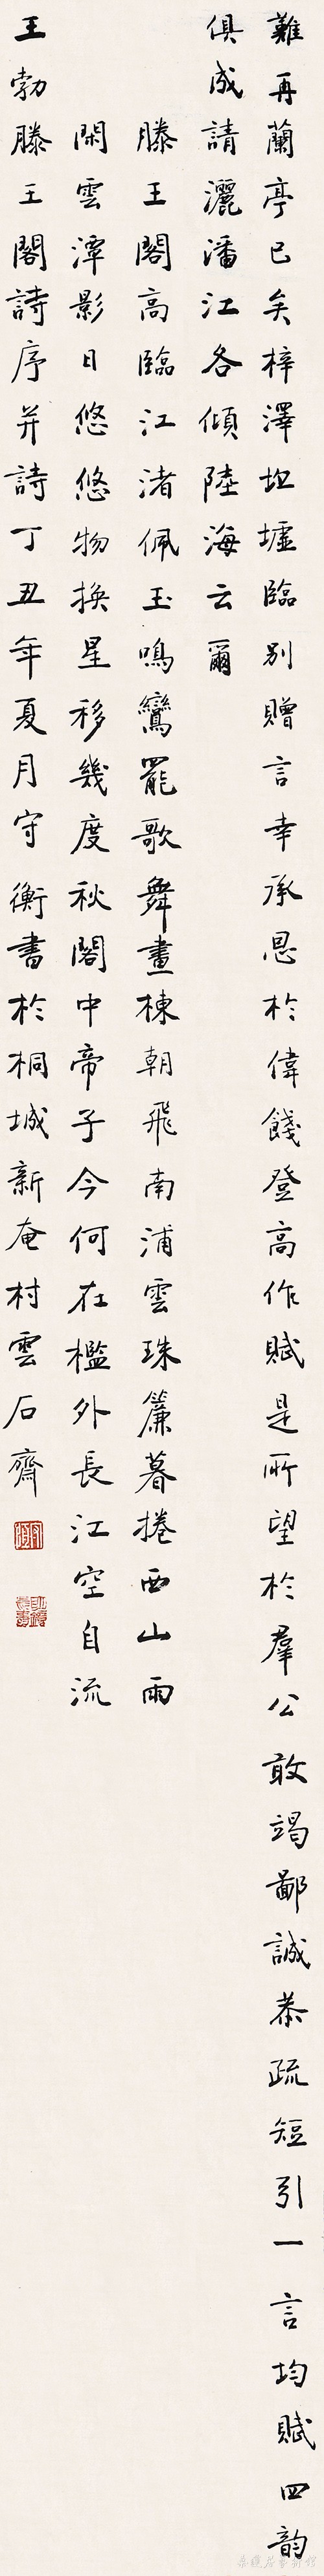 難再蘭亭已矣梓澤坵墟臨別贈言幸承恩於偉餞登高作賦是所望於羣公敢竭鄙誠恭疏短引一言均賦四韵
俱成請灑潘江各傾陸海云爾
滕王閣高臨江渚佩玉鳴鸞罷歌舞畫棟朝飛南浦雲珠簾暮捲西山雨
閑雲潭影日悠悠物換星移幾度秋閣中帝子今何在檻外長江空自流
王勃滕王閣詩序并詩丁丑年夏月守衡書於桐城新庵村雲石齋